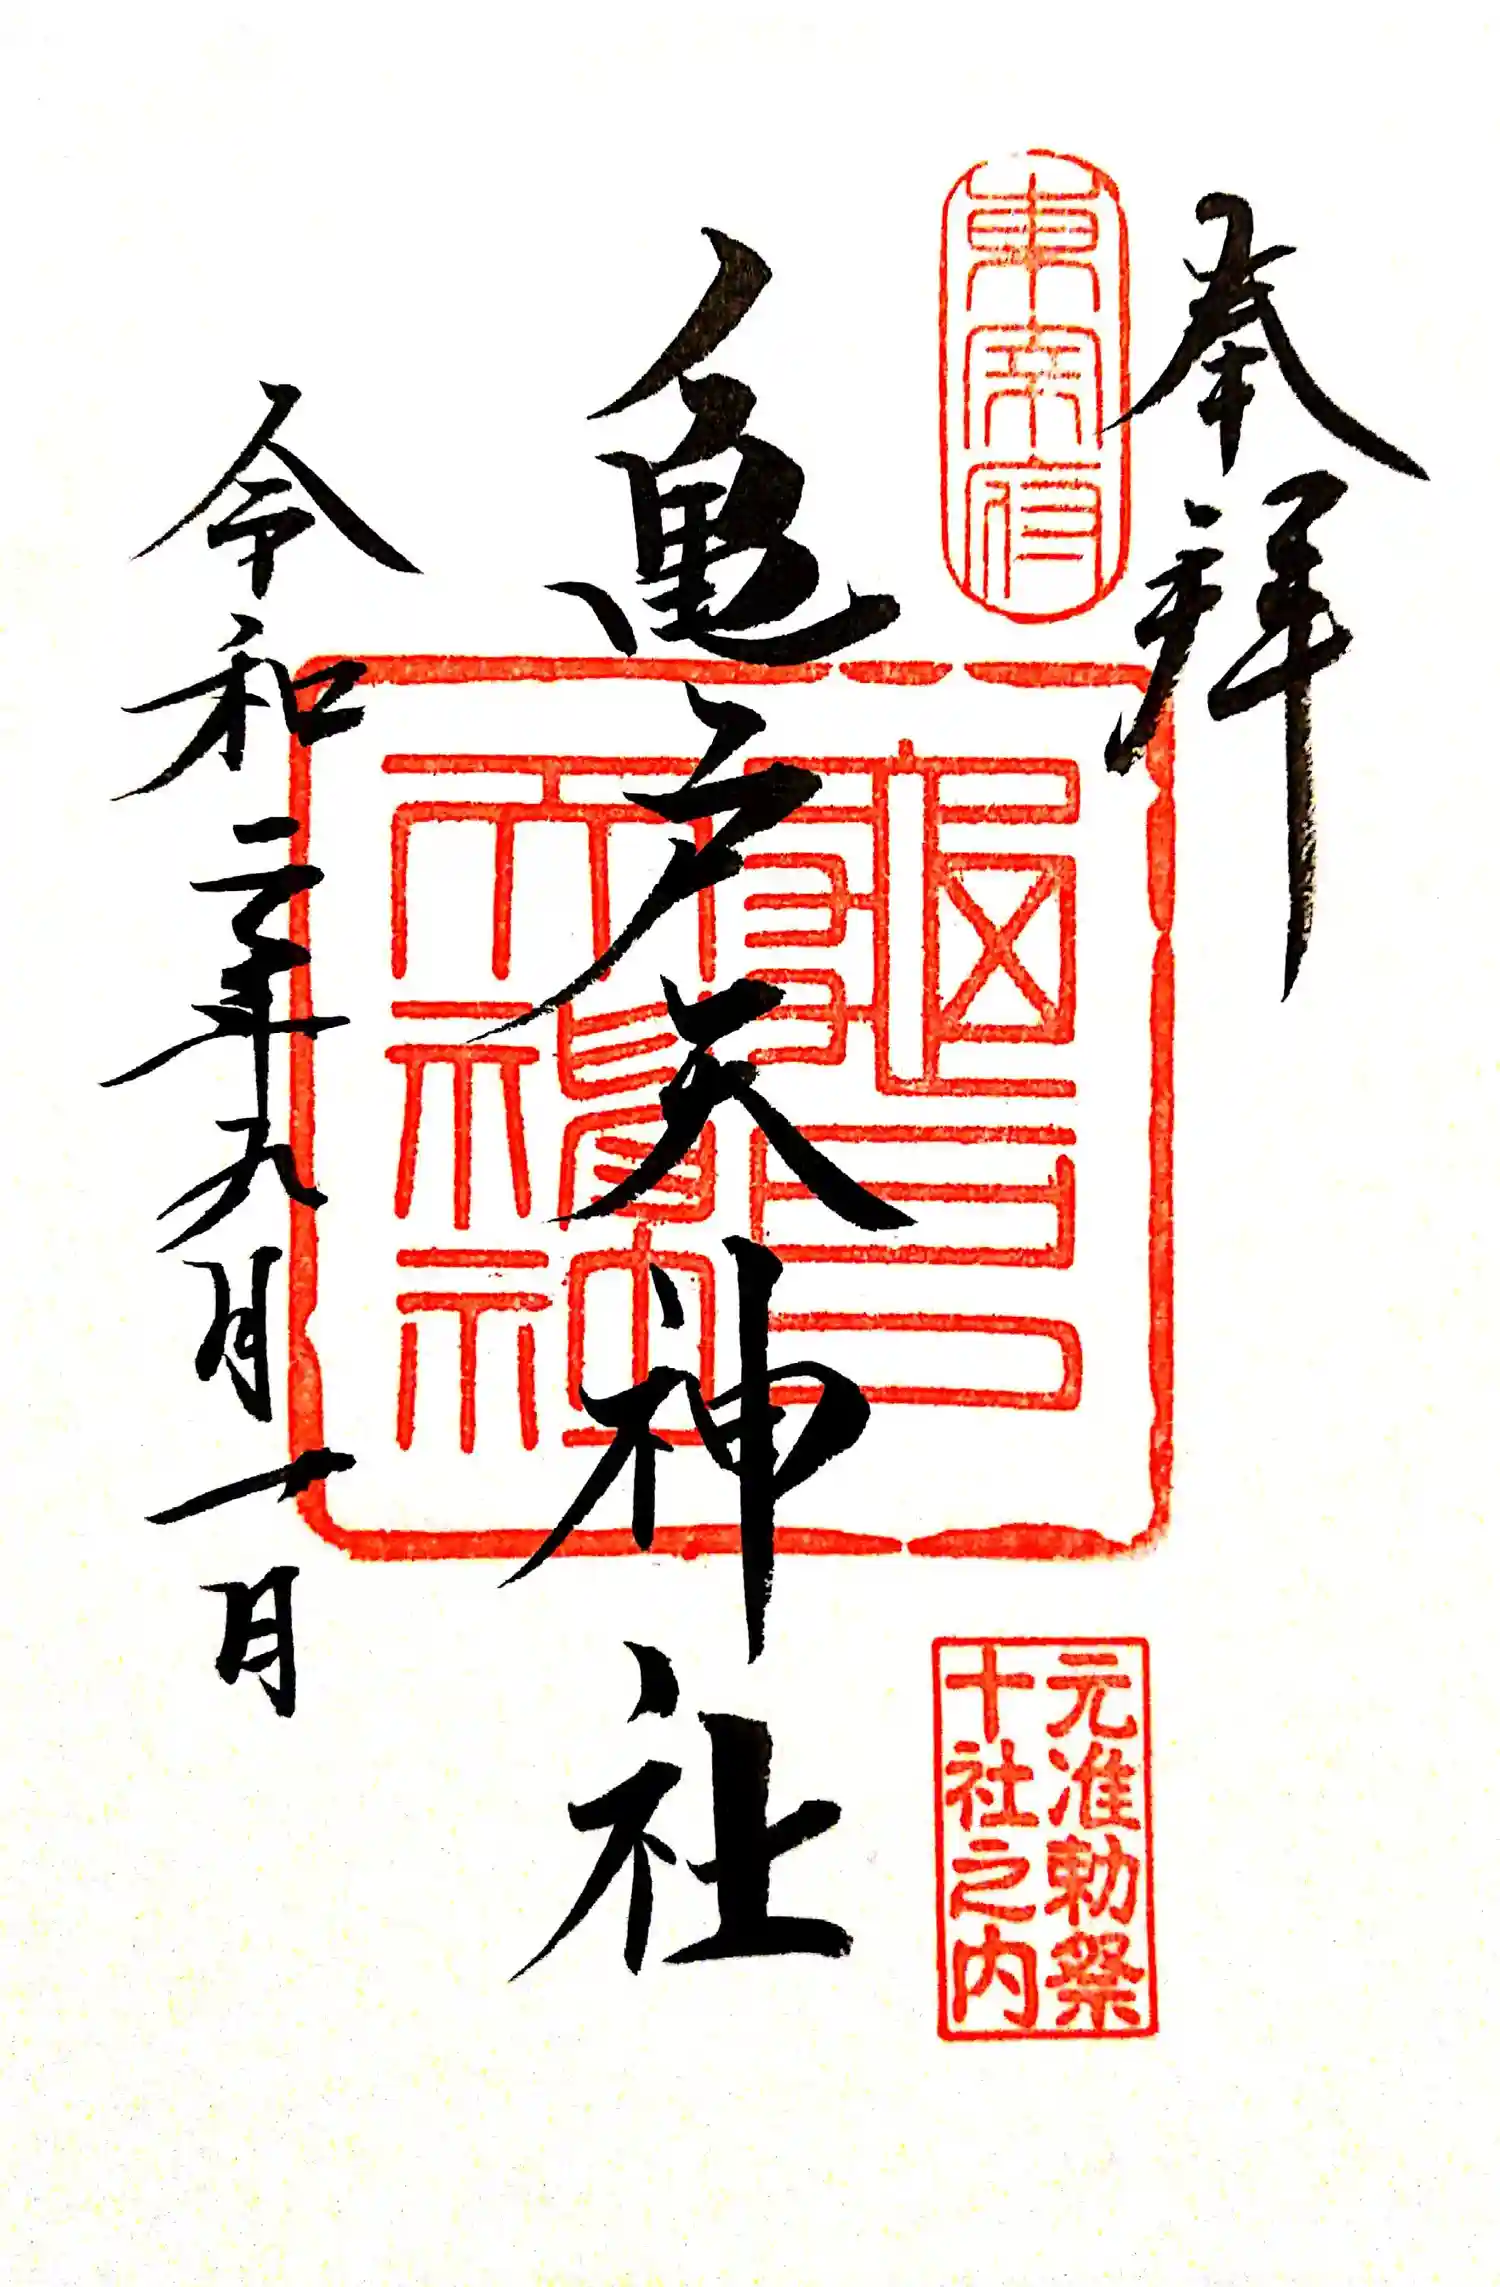 奉拝
東宰府
亀戸天神社
龜戸
天神社
元准勅祭
十社之内
令和二年九月一日